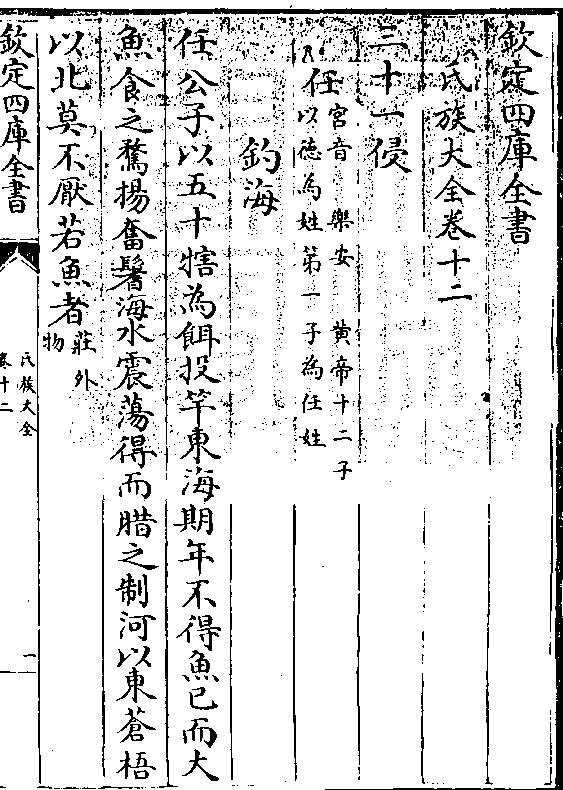 欽定四庫全書
氏族大全卷十二
三十一侵
任宮音 樂安 黃帝十二子
以德為姓第一子為任姓
釣海
任公子以五十犗為餌投竿東海期年不得魚已而大
魚食之騖揚奮鬐海水震蕩得而腊之制河以東蒼梧
以北莫不厭若魚者莊外
物
欽定四庫全書
氏族大全
卷十二
一